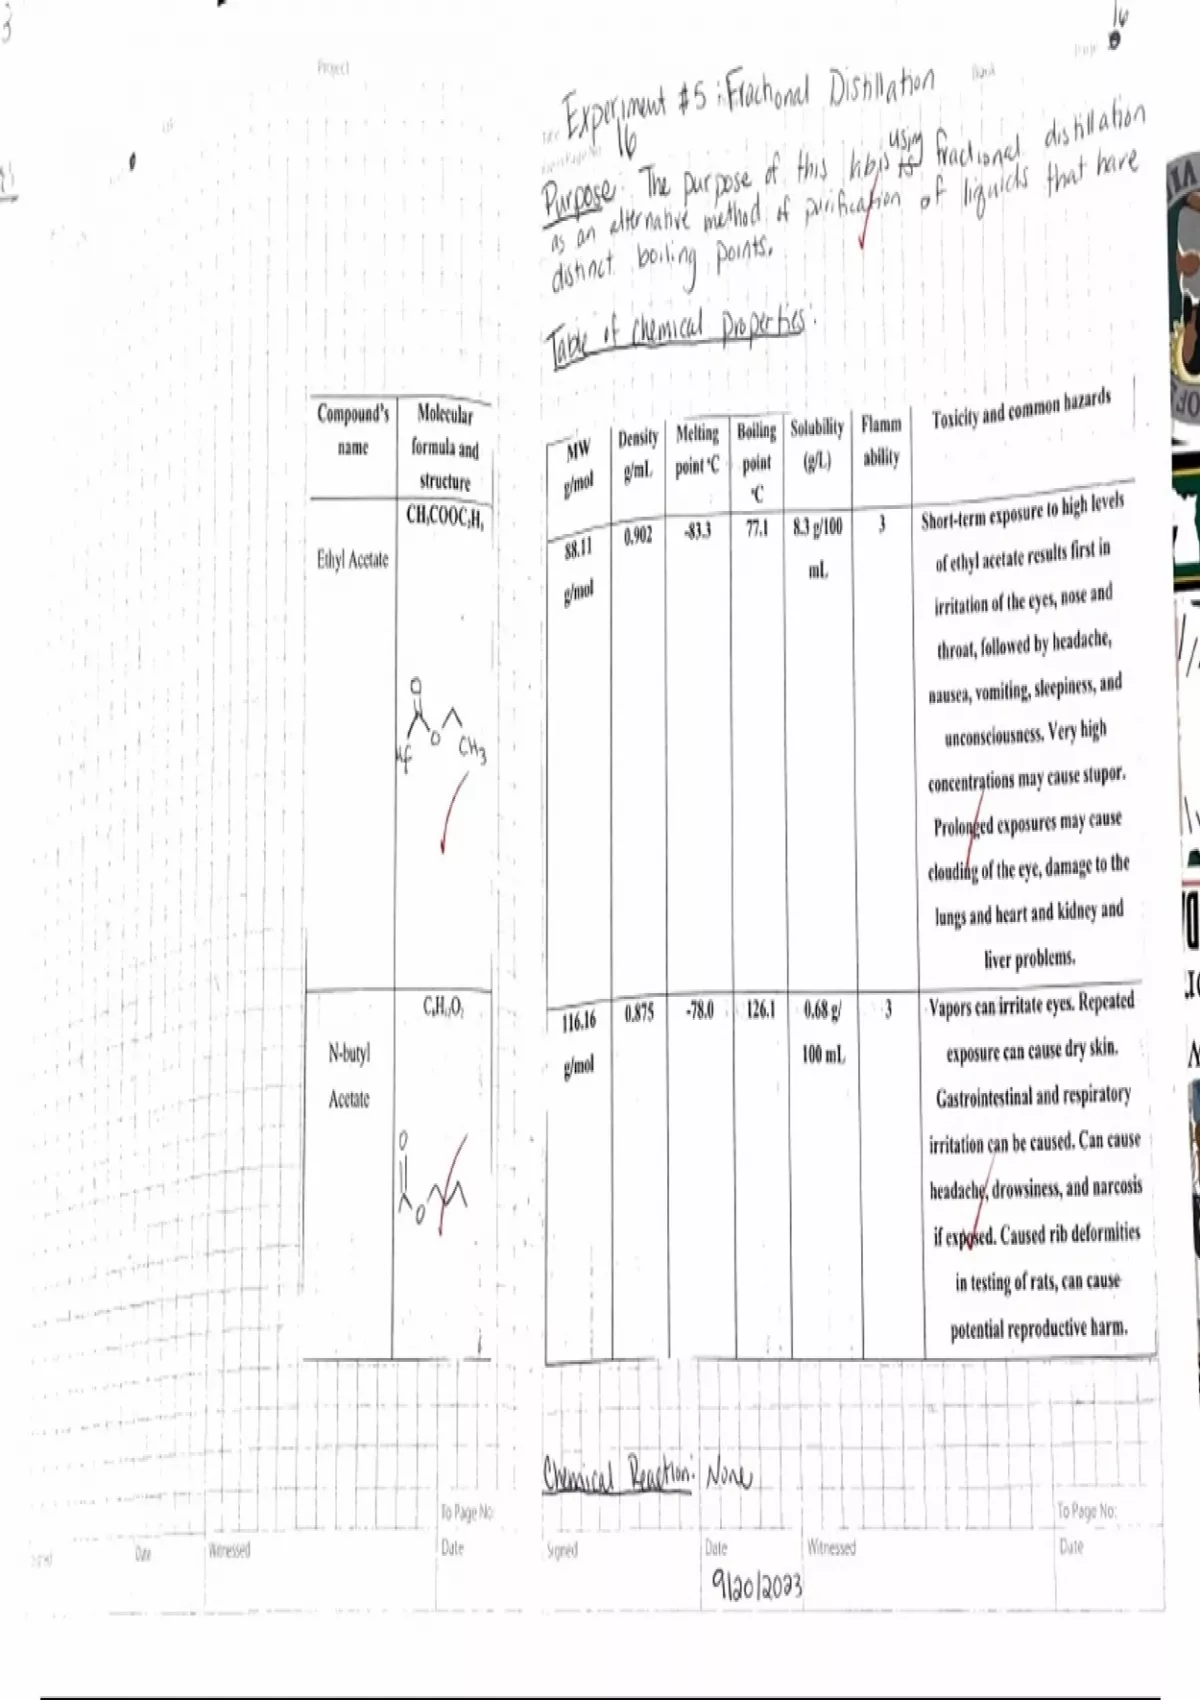 3
16
Project
Page
Book
Experiment #5 : Fractional Distillation
16
Purpose: The purpose of this lab is using fractional distillation
as an alternative method of purification of liquids that have
distinct boiling points.
Table of chemical properties:
Compound's name
Molecular formula and structure
MW g/mol
Density g/mL
Melting point °C
Boiling point °C
Solubility (g/L)
Flamm ability
Toxicity and common hazards
Ethyl Acetate
CH₃COOC₂H₅
O
O
CH3
88.11 g/mol
0.902
-83.3
77.1
8.3 g/100 mL
3
Short-term exposure to high levels
of ethyl acetate results first in
irritation of the eyes, nose and
throat, followed by headache,
nausea, vomiting, sleepiness, and
unconsciousness. Very high
concentrations may cause stupor.
Prolonged exposures may cause
clouding of the eye, damage to the
lungs and heart and kidney and
liver problems.
N-butyl
Acetate
C₆H₁₂O₂
O
O
116.16 g/mol
0.875
-78.0
126.1
0.68 g/ 100 mL
3
Vapors can irritate eyes. Repeated
exposure can cause dry skin.
Gastrointestinal and respiratory
irritation can be caused. Can cause
headache, drowsiness, and narcosis
if exposed. Caused rib deformities
in testing of rats, can cause
potential reproductive harm.
Chemical Reaction: None
To Page No:
To Page No:
Date
Witnessed
Date
Signed
Date
Witnessed
Date
9/20/2023